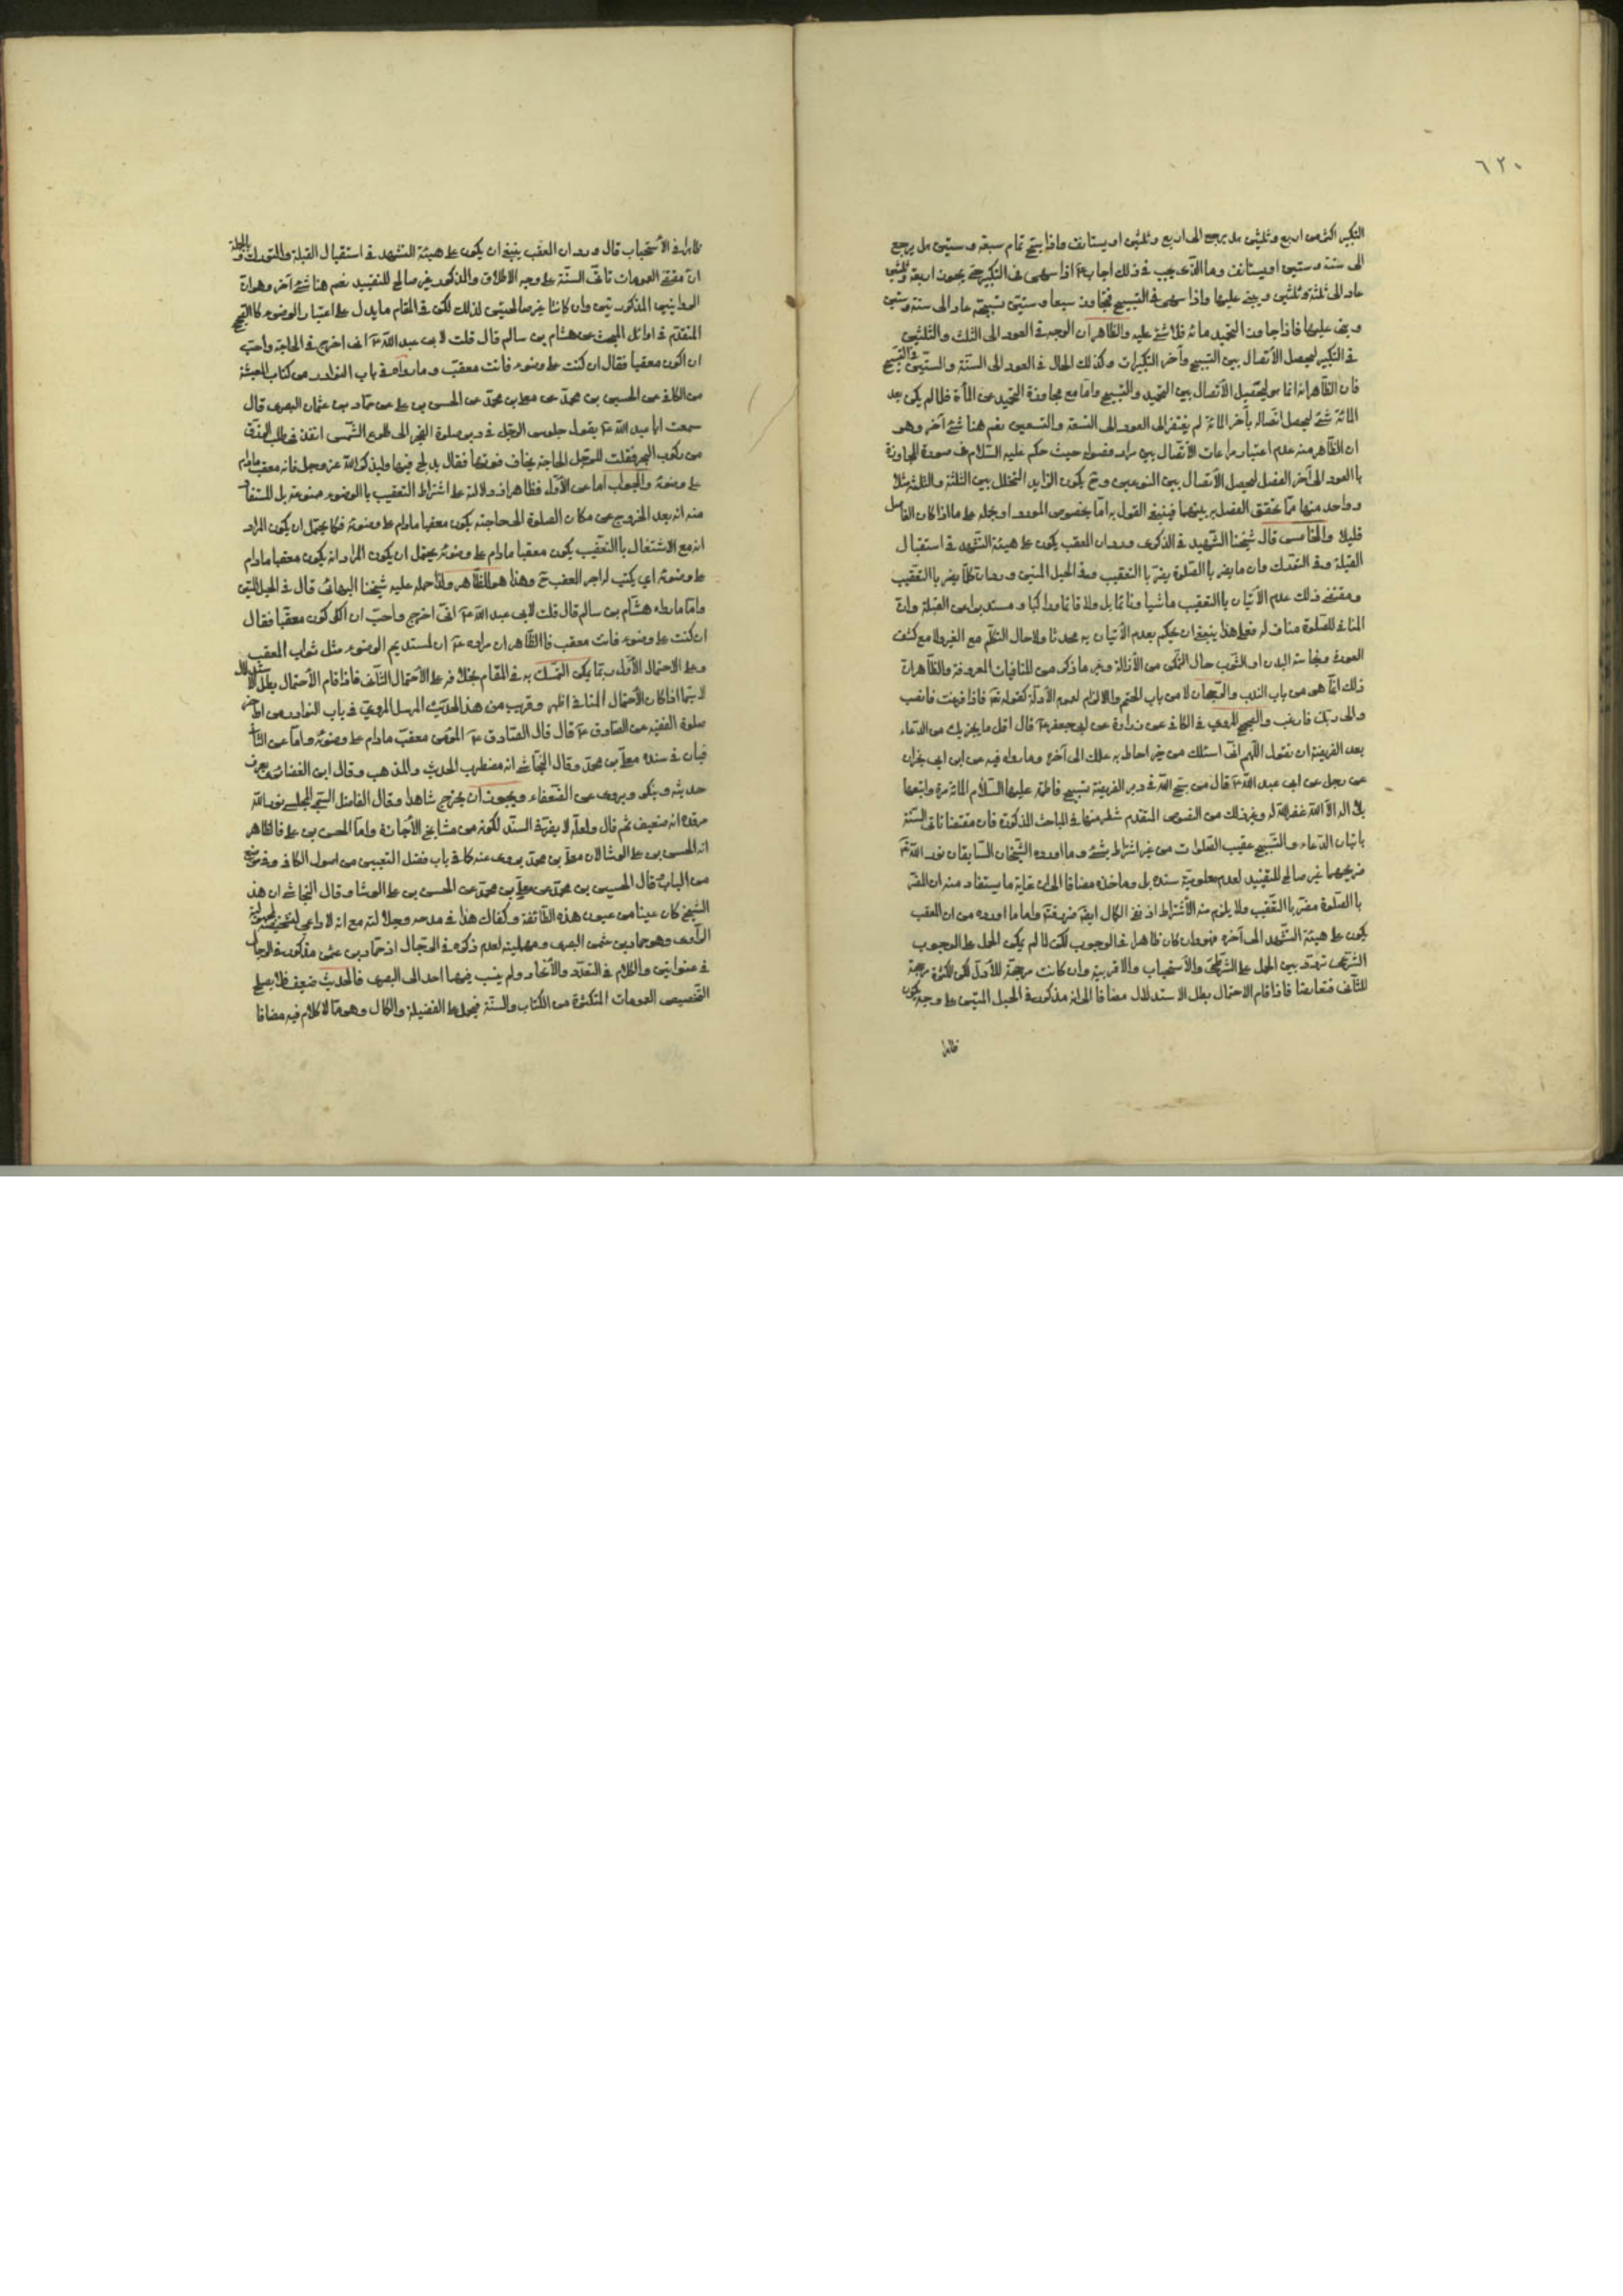 ٦٢٠
التكبير اكثر من اربع وثلثين هل يرجع الى اربع وثلثين او يستانف واذا سبّح تمام سبعة وستين هل يرجع
الى ستة وستين او يستانف وما الذى يجب فى ذلك اجاب ع اذا سهى فى التكبير حتى يجوز اربعة وثلثين
عاد الى ثلثة وثلثين ويبنى عليها واذا سهى فى التسبيح فتجاوز سبعا وستين تسبيحة عاد الى ستة وستين
وبنى عليها فاذا جاوز التحميد مائة فلا شئ عليه والظاهر ان الوجه فى العود الى الثلث والثلثين
فى التكبير ليحصل الاتصال بين التسبيح وآخر التكبيرات وكذلك الحال فى العود الى الستة والستين فى التسبيح
فان الظاهر انه انما هو لتحصيل الاتصال بين التحميد والتسبيح واما مع مجاوزة التحميد عن المأة فلما لم يكن بعد
المائة شئ ليحصل اتصاله بآخر المائة لم يفتقر الى العود الى التسعة والتسعين نعم هنا شئ آخر وهو
ان الظاهر منه عدم اعتبار مراعات الاتصال بين مراد مفصوله حيث حكم عليه السلام فى صورة المجاوزة
بالعود الى آخر الفصل ليحصل الاتصال بين النوعين وح يكون الزايد المتخلل بين الثلثة والثلثة مثلا
وواحد منها مما يتحقق الفصل به بينهما فينبغى القول به اما بخصوص المورد او يحمله على ما اذا كان الفاصل
قليلا والخامس قال شيخنا الشهيد فى الذكرى ورد ان المعقب يكون على هيئة التشهد فى استقبال
القبلة وفى التورك وان ما يضر بالصلوة يضر بالتعقيب وفى الحبل المتين وروى ان كلما يضر بالتعقيب
ومقتضى ذلك عدم الاتيان بالتعقيب ماشيا ونائما بل ولا قائما وراكبا ومستدبرا عن القبلة وان
المنافى للصلوة مناف له فعلى هذا ينبغى ان يحكم بعدم الاتيان به محدثا ولا حال التكلم مع الغير ولا مع كشف
العورة ونجاسة البدن او الثوب حال التمكن من الازالة وغير ما ذكر من المنافيات المعروفة والظاهر ان
ذلك انما هو من باب الندب والرجحان لا من باب الحتم والالزام لعموم الادلة كقوله تعالى فاذا فرغت فانصب
والى ربك فارغب والصحيح المروى فى الكافى عن زرارة عن ابى جعفر ع قال اقل ما يجزيك من الدعاء
بعد الفريضة ان تقول اللهم انى اسئلك من خير احاط به علمك الى آخره وما رواه فيه عن ابن ابى نجران
عن رجل عن ابى عبد الله ع قال من سبح الله فى دبر الفريضة تسبيح فاطمة عليها السلام المائة مرة واتبعها
بلا اله الا الله غفر الله له وغير ذلك من النصوص المتقدم شطر منها فى المباحث المذكورة فان مقتضاها تاتى السنة
باتيان الدعاء والتسبيح عقيب الصلوات من غير اشتراط بشئ وما اورده الشيخان السابقان نور الله
ضريحهما غير صالح للتقييد لعدم معلومية سنده بل وماخذه مضافا الى ان غاية ما يستفاد منه ان المضر
بالصلوة مضر بالتعقيب ولا يلزم منه الاشتراط اذ نفى الكمال ايضا ضرر فتم واما ما اورده من ان المعقب
يكون على هيئة التشهد الى آخره فهو وان كان ظاهرا فى الوجوب لكن لما لم يكن الحمل على الوجوب
الشرعى تردد بين الحمل على الشرطى والاستحباب والاقربية وان كانت مرجحة للاول لكن الكثرة مرجحة
للثانى فتعارضا فاذا قام الاحتمال بطل الاستدلال مضافا الى انه مذكور فى الحبل المتين على وجه يكون
ظاهرا
ظاهرا فى الاستحباب قال وورد ان المعقب ينبغى ان يكون على هيئة التشهد فى استقبال القبلة والتورك وبالجملة
ان مقتضى العمومات تاتى السنة على وجه الاطلاق والمذكور غير صالح للتقييد نعم هنا شئ آخر وهو ان
الروايتين المذكورتين وان كانتا غير صالحتين لذلك لكن فى المقام ما يدل على اعتبار الوضوء كالصحيح
المتقدم فى اوائل المبحث عن هشام بن سالم قال قلت لابى عبد الله ع انى اخرج فى الحاجة واحب
ان اكون معقبا فقال ان كنت على وضوء فانت معقب وما رواه فى باب النوادر من كتاب المعيشة
من الكافى عن الحسين بن محمد عن معلى بن محمد عن الحسن بن على عن حماد بن عثمان البصرى قال
سمعت ابا عبد الله ع يقول جلوس الرجل فى دبر صلوة الفجر الى طلوع الشمس انفذ فى طلب الرزق
من ركوب البحر فقلت للرجل الحاجة يخاف فوتها فقال يدلج فيها وليذكر الله عز وجل فانه معقب مادام
على وضوئه والجواب اما عن الاول فظاهر اذ دلالته على اشتراط التعقيب بالوضوء ممنوعة بل المستفاد
منه انه بعد الخروج عن مكان الصلوة الى حاجته يكون معقبا مادام على وضوئه فكما يحتمل ان يكون المراد
انه مع الاشتغال بالتعقيب يكون معقبا مادام على وضوئه يحتمل ان يكون المراد انه يكون معقبا مادام
على وضوئه اى يكتب له اجر المعقب ح وهذا هو الظاهر ولذا حمله عليه شيخنا البهائى قال فى الحبل المتين
واما ما رواه هشام بن سالم قال قلت لابى عبد الله ع انى اخرج واحب ان اكون معقبا فقال
ان كنت على وضوء فانت معقب فالظاهر ان مراده ع ان لمستديم الوضوء مثل ثواب المعقب
وعلى الاحتمال الاول وبما يكن التمسك به فى المقام بخلافه على الاحتمال الثانى فاذا قام الاحتمال بطل الاستدلال
لا سيما اذا كان الاحتمال المنافى اظهر وقريب من هذا الحديث المرسل المروى فى باب النوادر من اواخر
صلوة الفقيه عن الصادق ع قال قال الصادق ع المؤمن معقب مادام على وضوئه واما عن الثانى
فبان فى سنده معلى بن محمد وقال النجاشى انه مضطرب الحديث والمذهب وقال ابن الغضائرى يعرف
حديثه وينكر ويروى عن الضعفاء ويجوز ان يخرج شاهدا وقال الفاضل السمى المجلسى نور الله
مرقده انه ضعيف ثم قال ولعله لا يضر فى السند لكونه من مشايخ الاجازة واما الحسن بن على فالظاهر
انه الحسن بن على الوشا لان معلى بن محمد يروى عنه كما فى باب فضل التعيين من اصول الكافى وفى موضع
من الباب قال الحسين بن محمد عن معلى بن محمد عن الحسن بن على الوشا وقال النجاشى ان هذا
الشيخ كان عينا من عيون هذه الطائفة وكفاك هذا فى مدحه وجلالته مع انه لا داعى لتشخيصه لمجهولية
الراوى وهو حماد بن عثمن البصرى ومهمليته لعدم ذكره فى الرجال اذ حماد بن عثمن مذكور فى الرجال
فى عنوانين والكلام فى التعدد والاتحاد ولم ينسب فيهما احد الى البصرى فالحديث ضعيف فلا يصلح
لتخصيص العمومات المتكثرة من الكتاب والسنة فيحمل على الفضيلة والكمال وهو مما لا كلام فيه مضافا